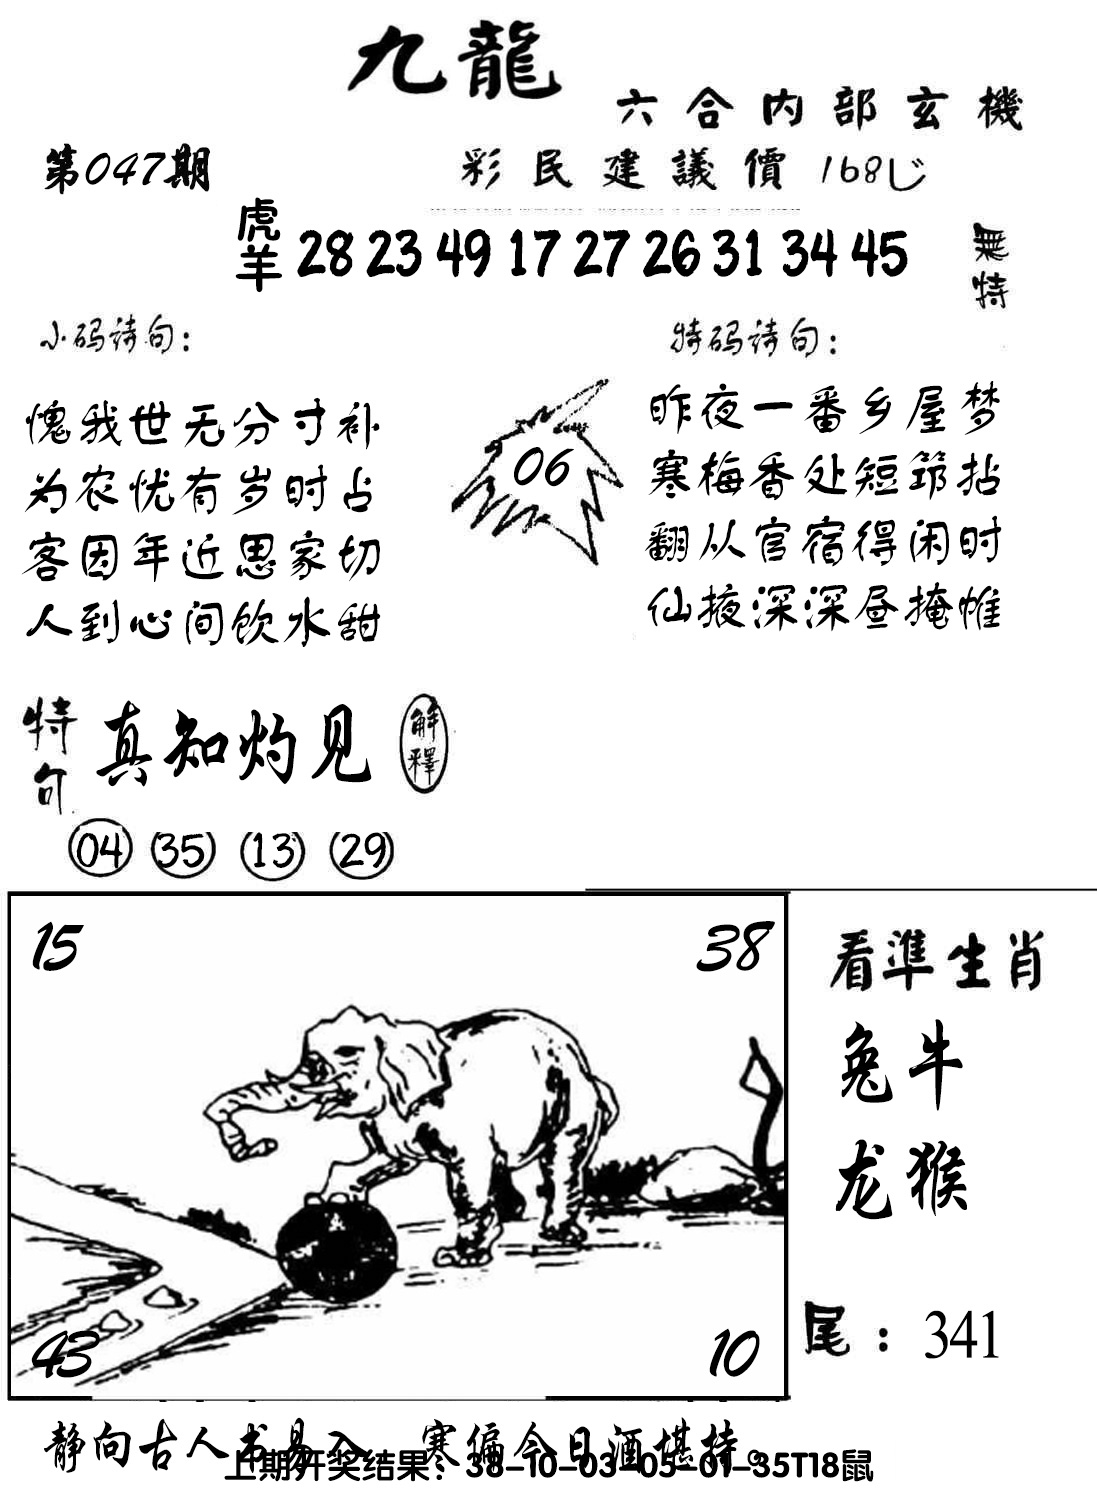 九龍
六合内部玄機
第047期
彩民建議價 168
虎羊 28 23 49 17 27 26 31 34 45
無特
小码诗句：
愧我世无分寸补
为农忧有岁时占
客因年近思家切
人到心间饮水甜
06
特码诗句：
昨夜一番乡屋梦
寒梅香处短筇拈
翻从官宿得闲时
仙掖深深昼掩帷
特句 真知灼见 解釋
04 35 13 29
15 38
43 10
看準生肖
兔牛
龙猴
尾：341
静向古人书易入 寒偏今日酒堪持。
上期开奖结果：38-10-03-05-01-35T18鼠